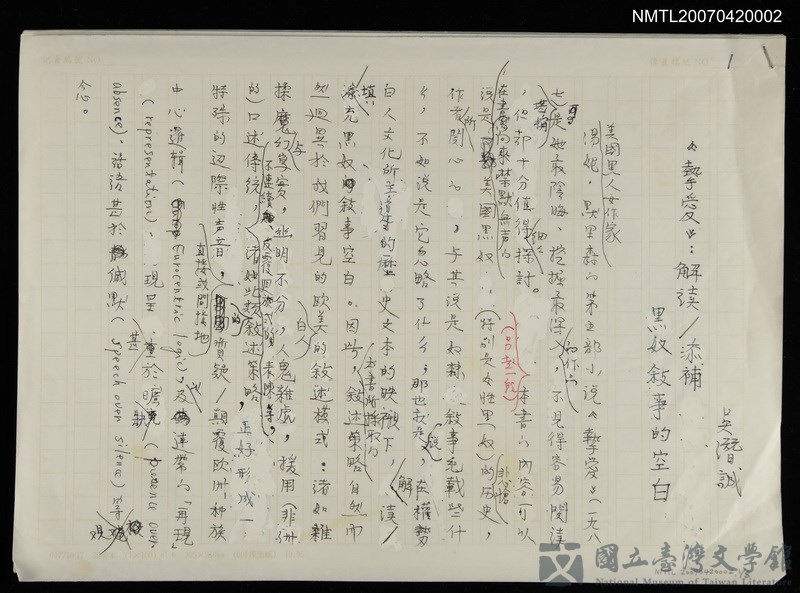 NMTL20070420002
1
《摯愛》：解讀／添補
黑奴敘事的空白
吳潛誠
美國黑人女作家
湯妮．默里森的第五部小說《摯愛》（一九八
七）可是她最陰晦、挖掘最深入的作，不見得容易閱讀
，但却十分值得細細探討。
（另起一段）
本書的內容可以
說是在書寫向來禁默無聲的美國黑奴，（特別是女性黑奴）的歷史，
作者所關心的，與其說是奴隸敘事記載些什
么，不如說是它忽略了什么；那也就是說，在權勢
白人文化所主導的歷史文本的映襯下，解讀／
填充黑奴敘事空白。因此，本書所採取的敘述策略自然而
然迥異於我們習見的歐美白人的敘述模式：諸如雜
揉魔幻與寫實，幽明不分，人鬼雜處，援用（非洲
的）口述傳統、不連續、反覆迴旋式的表陳等，諸如此類敘述策略，正好形成一
特殊的邊際性聲音，直接或間接地質疑／顛覆歐洲種族
中心邏輯（Eurocentric logic），以及連帶的「再現」
（representation）、現在甚於缺（presence over
absence）、話語甚於緘默（speech over silence）等
念。
國立臺灣文學館
National Museum of Taiwan Literature